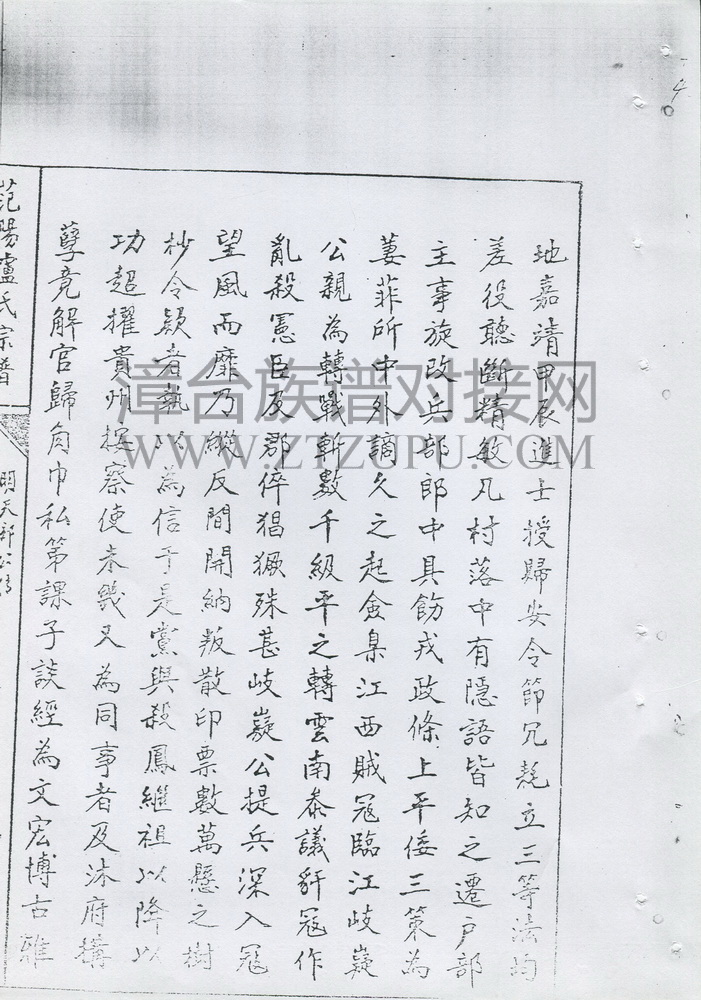 4
地嘉靖甲辰進士授歸安令節冗耗立三等法均
差役聽斷精敏凡村落中有隱語皆知之遷户部
主事旋改兵部郎中具飭戎政條上平倭三策為
萋菲所中外謫久之起僉臬江西賊冦臨江岐嶷
公親為轉戰斬數千級平之轉雲南叅議豻冦作
亂殺憲臣及郡倅猖獗殊甚岐嶷公提兵深入冦
望風而靡乃縱反間開納叛散印票數萬懸之樹
杪令欵者執以為信于是黨與殺鳳繼祖以降以
功超擢貴州按察使未幾又為同事者及沐府搆
孽竟解官歸角巾私第課子談經為文宏博古雅
范陽盧氏宗譜
漳台族谱对接网
WWW.ZTZUPU.COM